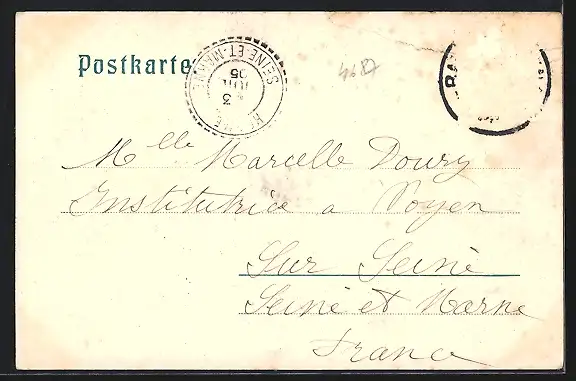 Postkarte
SEINE-ET-MARNE
3
JUIL
05
4687
BA
Mlle Marcelle Doury
Institutrice a Noyen
Sur Seine
Seine et Marne
France